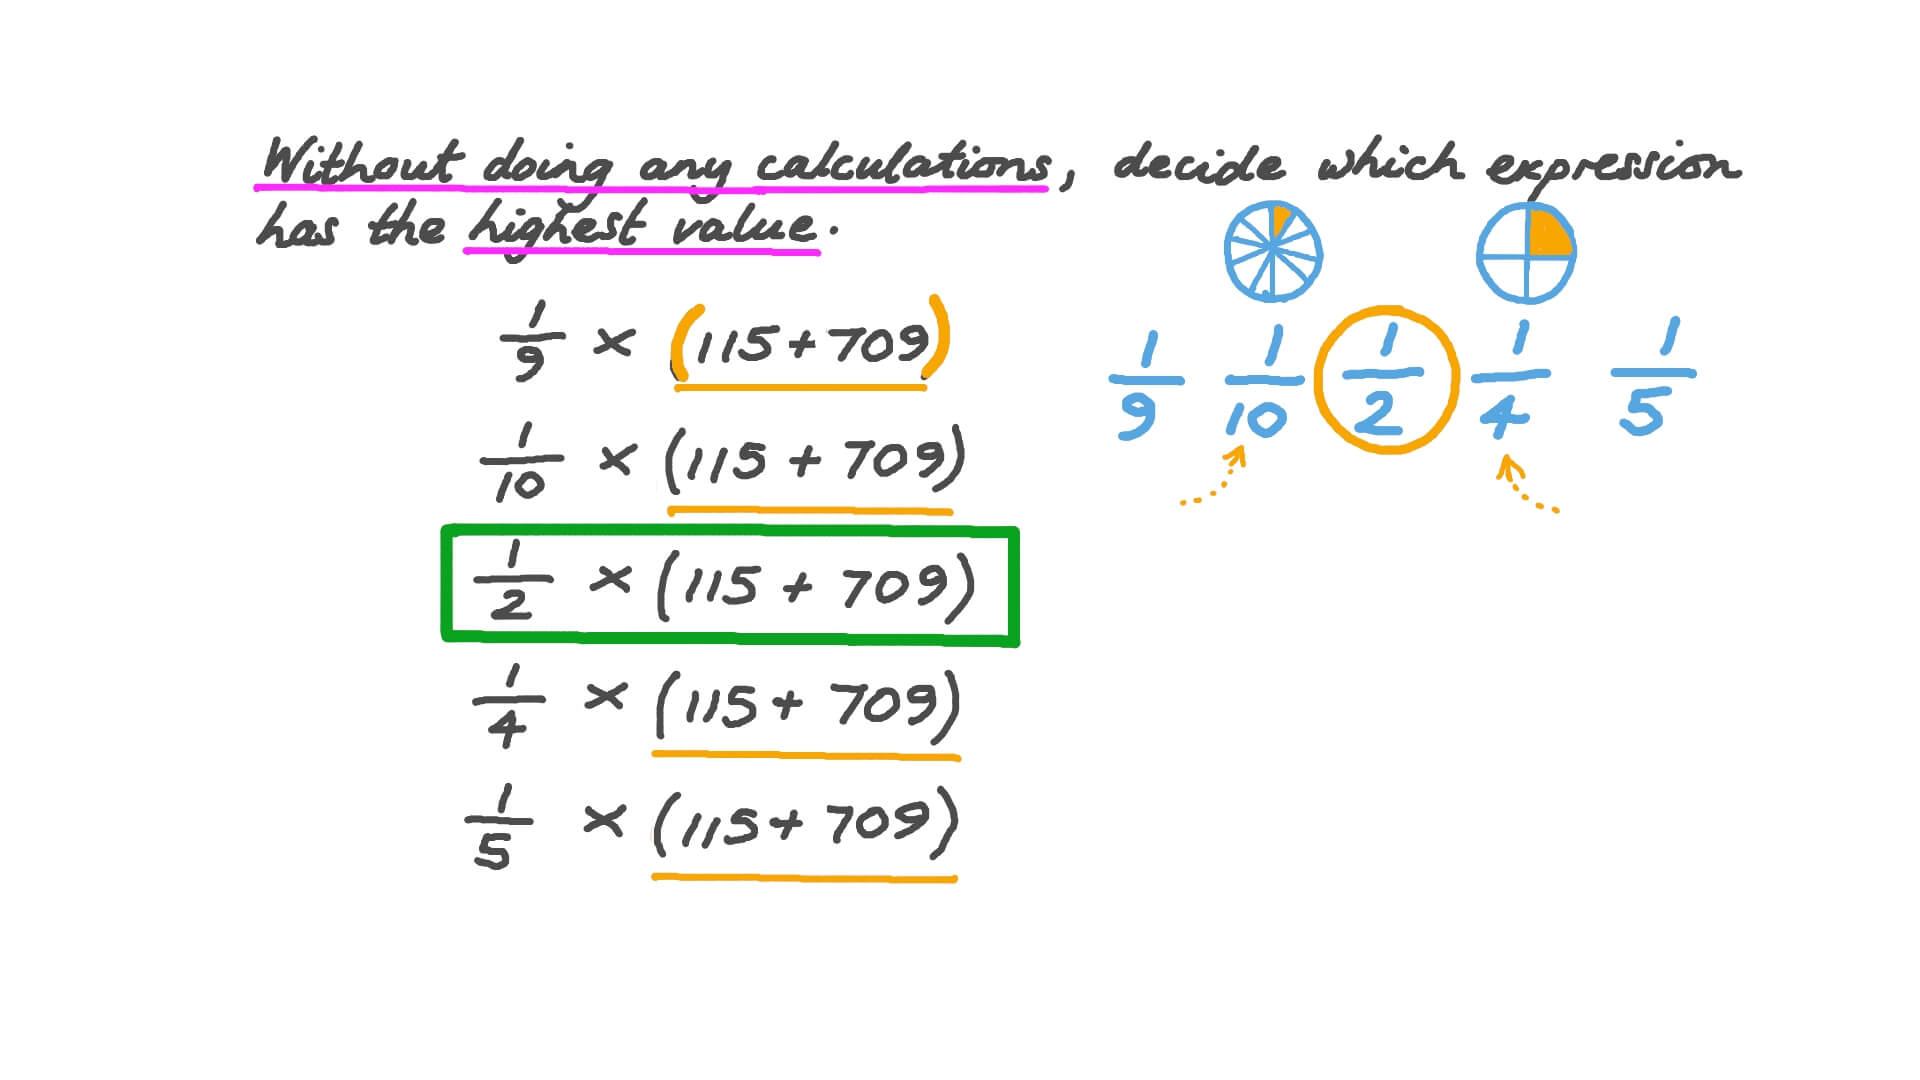 Without doing any calculations, decide which expression
has the highest value.
1/9 × (115 + 709)
1/10 × (115 + 709)
1/2 × (115 + 709)
1/4 × (115 + 709)
1/5 × (115 + 709)
1/9 1/10 1/2 1/4 1/5